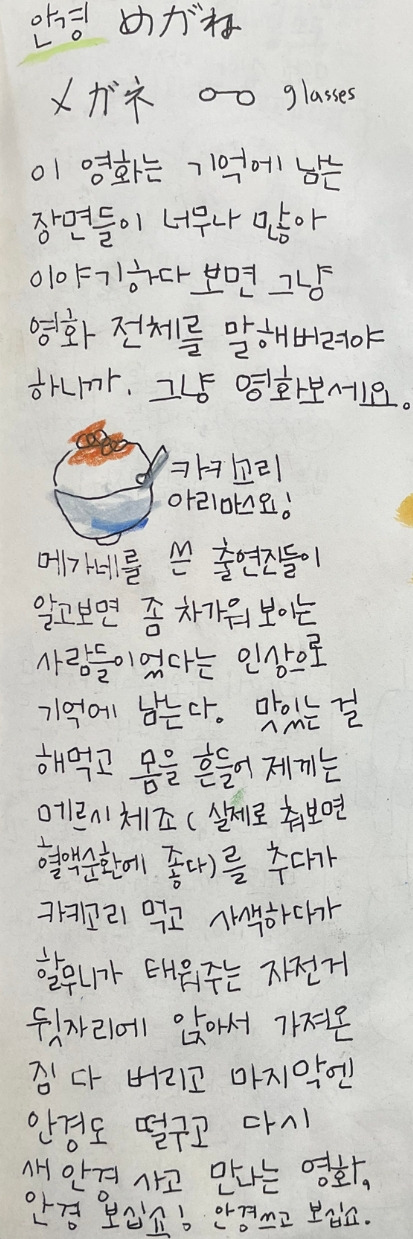 안경 めがね
メガネ glasses
이 영화는 기억에 남는
장면들이 너무나 많아
이야기하다 보면 그냥
영화 전체를 말해버려야
하니까. 그냥 영화보세요.
카키고리
아리마스요!
메가네를 쓴 출연진들이
알고보면 좀 차가워 보이는
사람들이었다는 인상으로
기억에 남는다. 맛있는 걸
해먹고 몸을 흔들어 제끼는
메르시 체조( 실제로 춰보면
혈액순환에 좋다)를 추다가
카키고리 먹고 사색하다가
할무니가 태워주는 자전거
뒷자리에 앉아서 가져온
짐 다 버리고 마지막엔
안경도 떨구고 다시
새 안경 사고 만나는 영화,
안경 보십쇼! 안경쓰고 보십쇼.